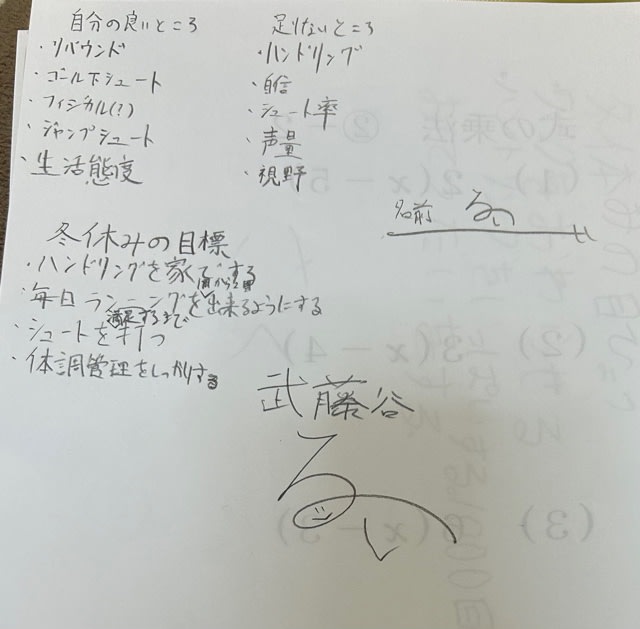 自分の良いところ
・リバウンド
・ゴール下シュート
・フィジカル(?)
・ジャンプシュート
・生活態度
足りないところ
・ハンドリング
・自信
・シュート率
・声量
・視野
名前 るい
冬休みの目標
・ハンドリングを家でする
・毎日ランニングを出来るようにする
満足するまで
・シュートを打つ
・体調管理をしっかりする
武藤谷
るい
式の乗法 ②
(1) 2(x-5
(2) 3(x-4)
(3) (x-3)